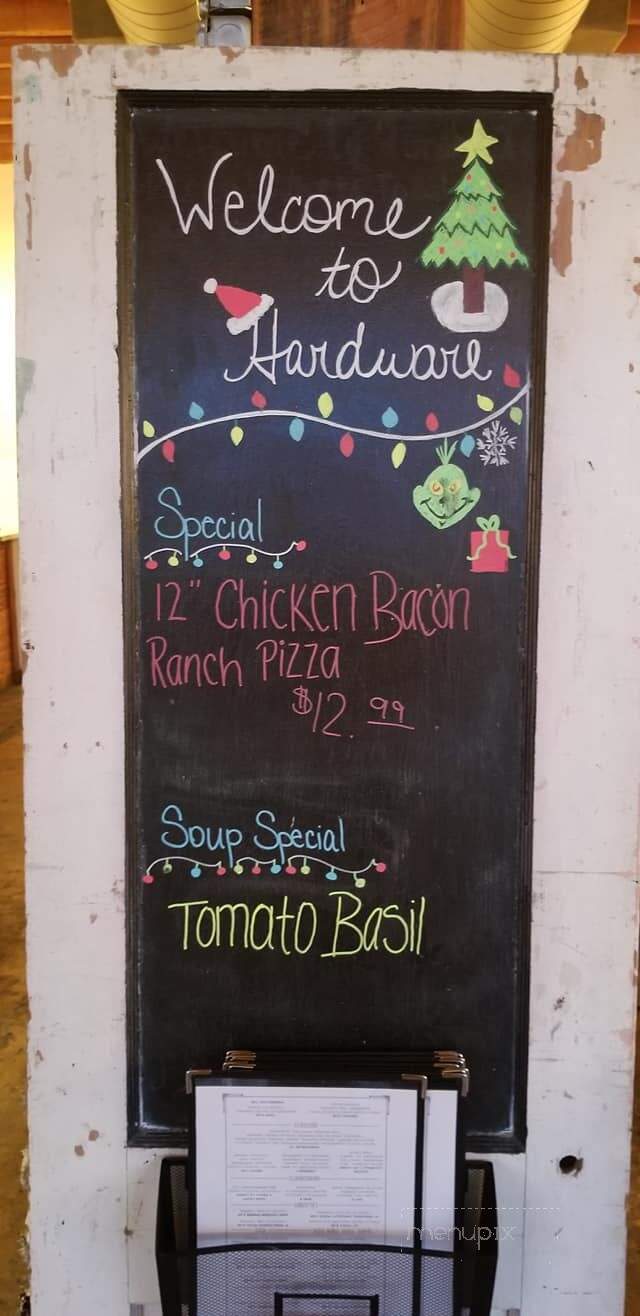 Welcome
to
Hardware
Special
12" Chicken Bacon
Ranch Pizza
$12.99
Soup Special
Tomato Basil
menupix